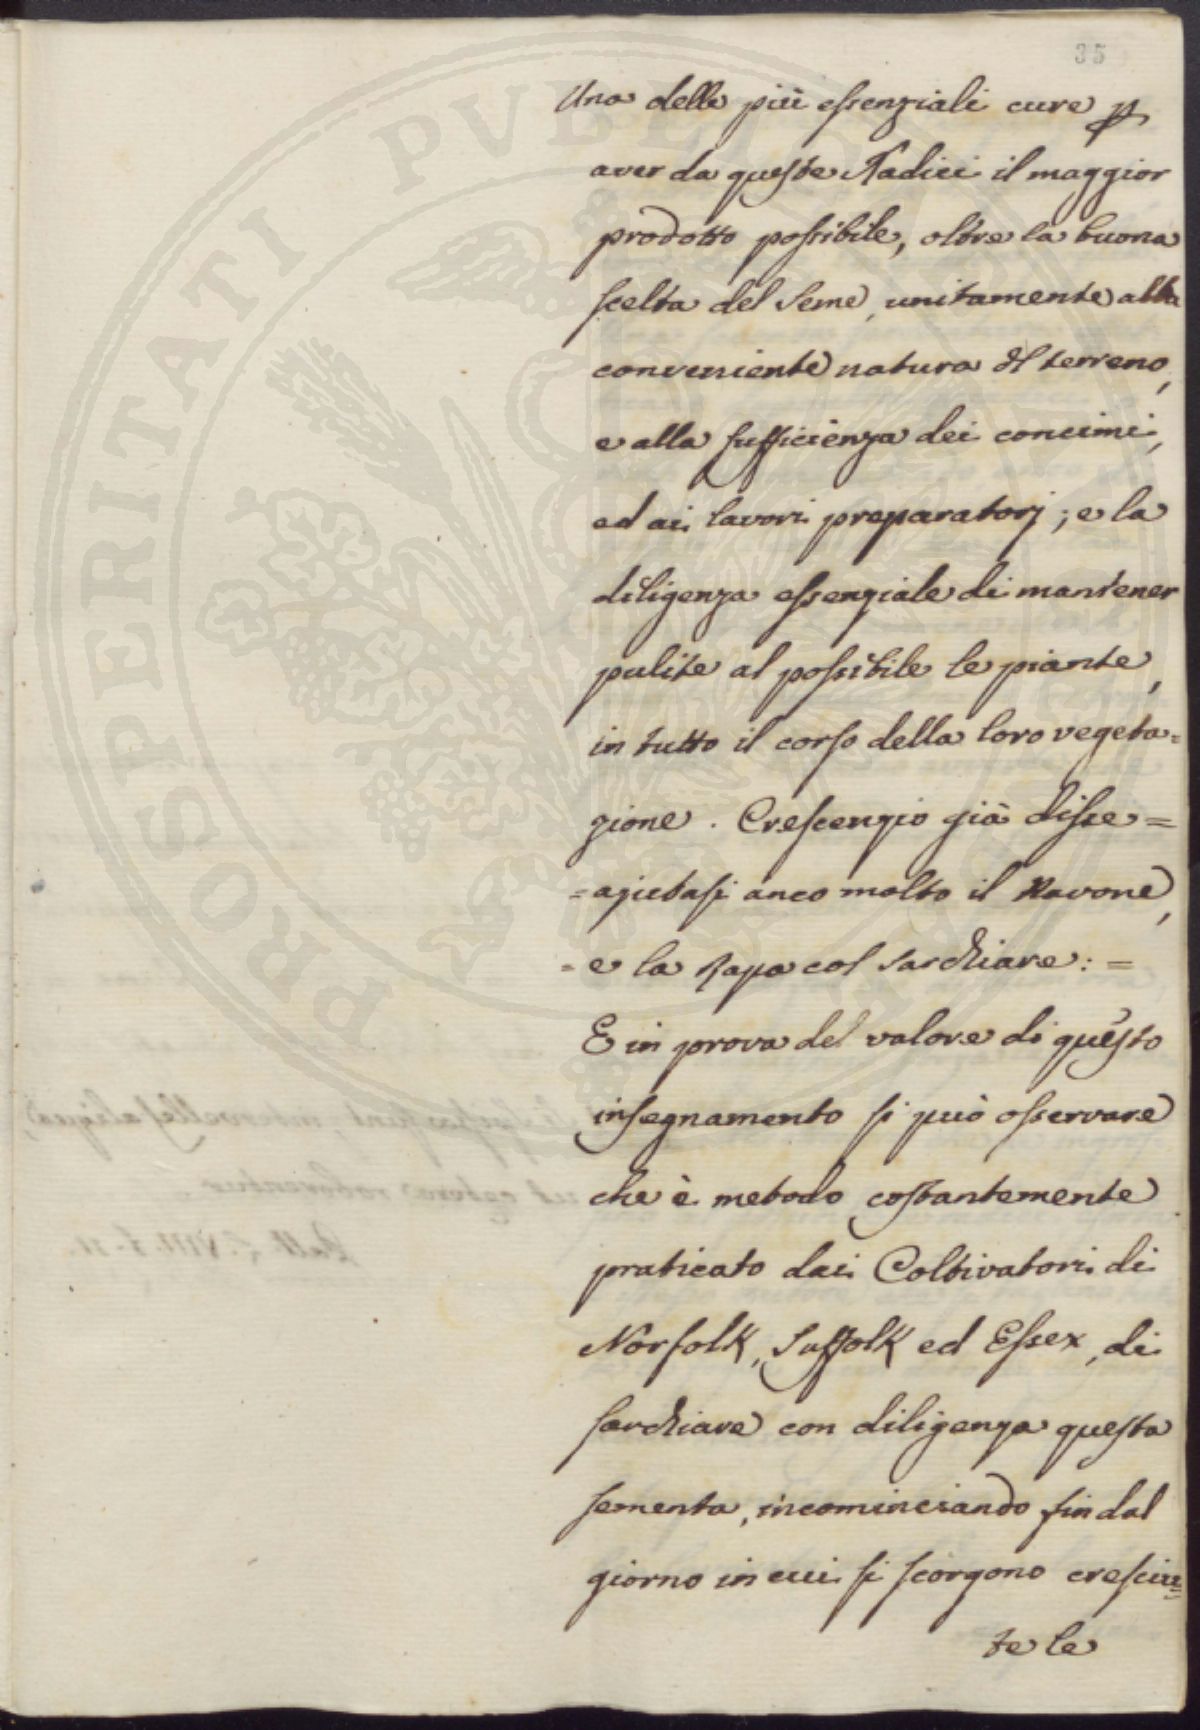 35
Una delle più essenziali cure p
aver da queste Radici il maggior
prodotto possibile, oltre la buona
scelta del Seme, unitamente alla
conveniente natura del terreno,
e alla sufficienza dei concimi,
ed ai lavori preparatorj; e la
diligenza essenziale di mantener
pulite al possibile le piante,
in tutto il corso della loro vegeta=
zione. Crescenzio già disse =
= ajutasi anco molto il Ravone,
= e la Rapa col sarchiare: =
E in prova del valore di questo
insegnamento si può osservare
che è metodo costantemente
praticato dai Coltivatori di
Norfolk, Suffolk ed Essex, di
sarchiare con diligenza questa
sementa, incominciando fin dal
giorno in cui si scorgono cresciu=
te le
PROSPERITATI PVBLICAE